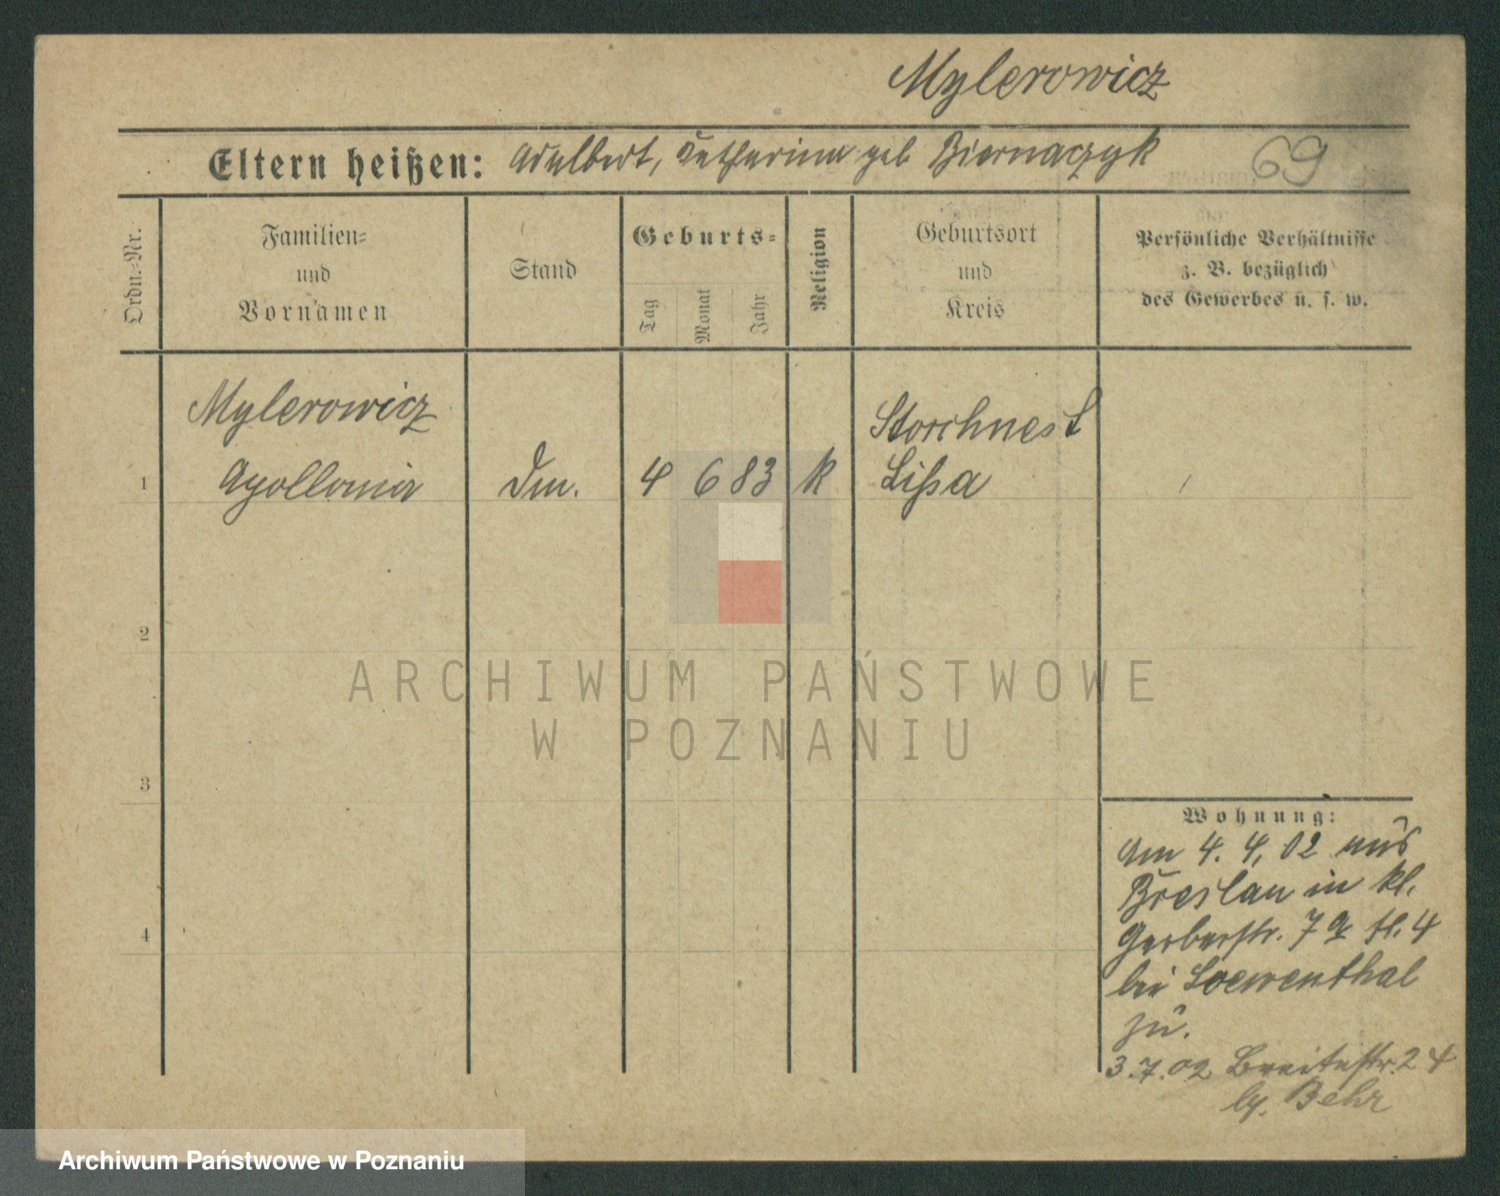 Mylerowicz
Eltern heißen: Adalbert, Katharina geb Biernaczyk
69
Ordn.-Nr.
Familien-
und
Vornamen
Stand
Geburts-
Tag
Monat
Jahr
Religion
Geburtsort
und
Kreis
Persönliche Verhältnisse
z. B. bezüglich
des Gewerbes u. s. w.
Mylerowicz
1 Apollonia Dm. 4 6 83 k
Storchnest
Lißa
2
3
4
ARCHIWUM PAŃSTWOWE
W POZNANIU
Wohnung:
Am 4. 4. 02 aus
Breslau in kl.
Gerberstr. 7 4
bei Loewenthal
zu.
3.7.02 Breitestr. 24
Behr
Archiwum Państwowe w Poznaniu